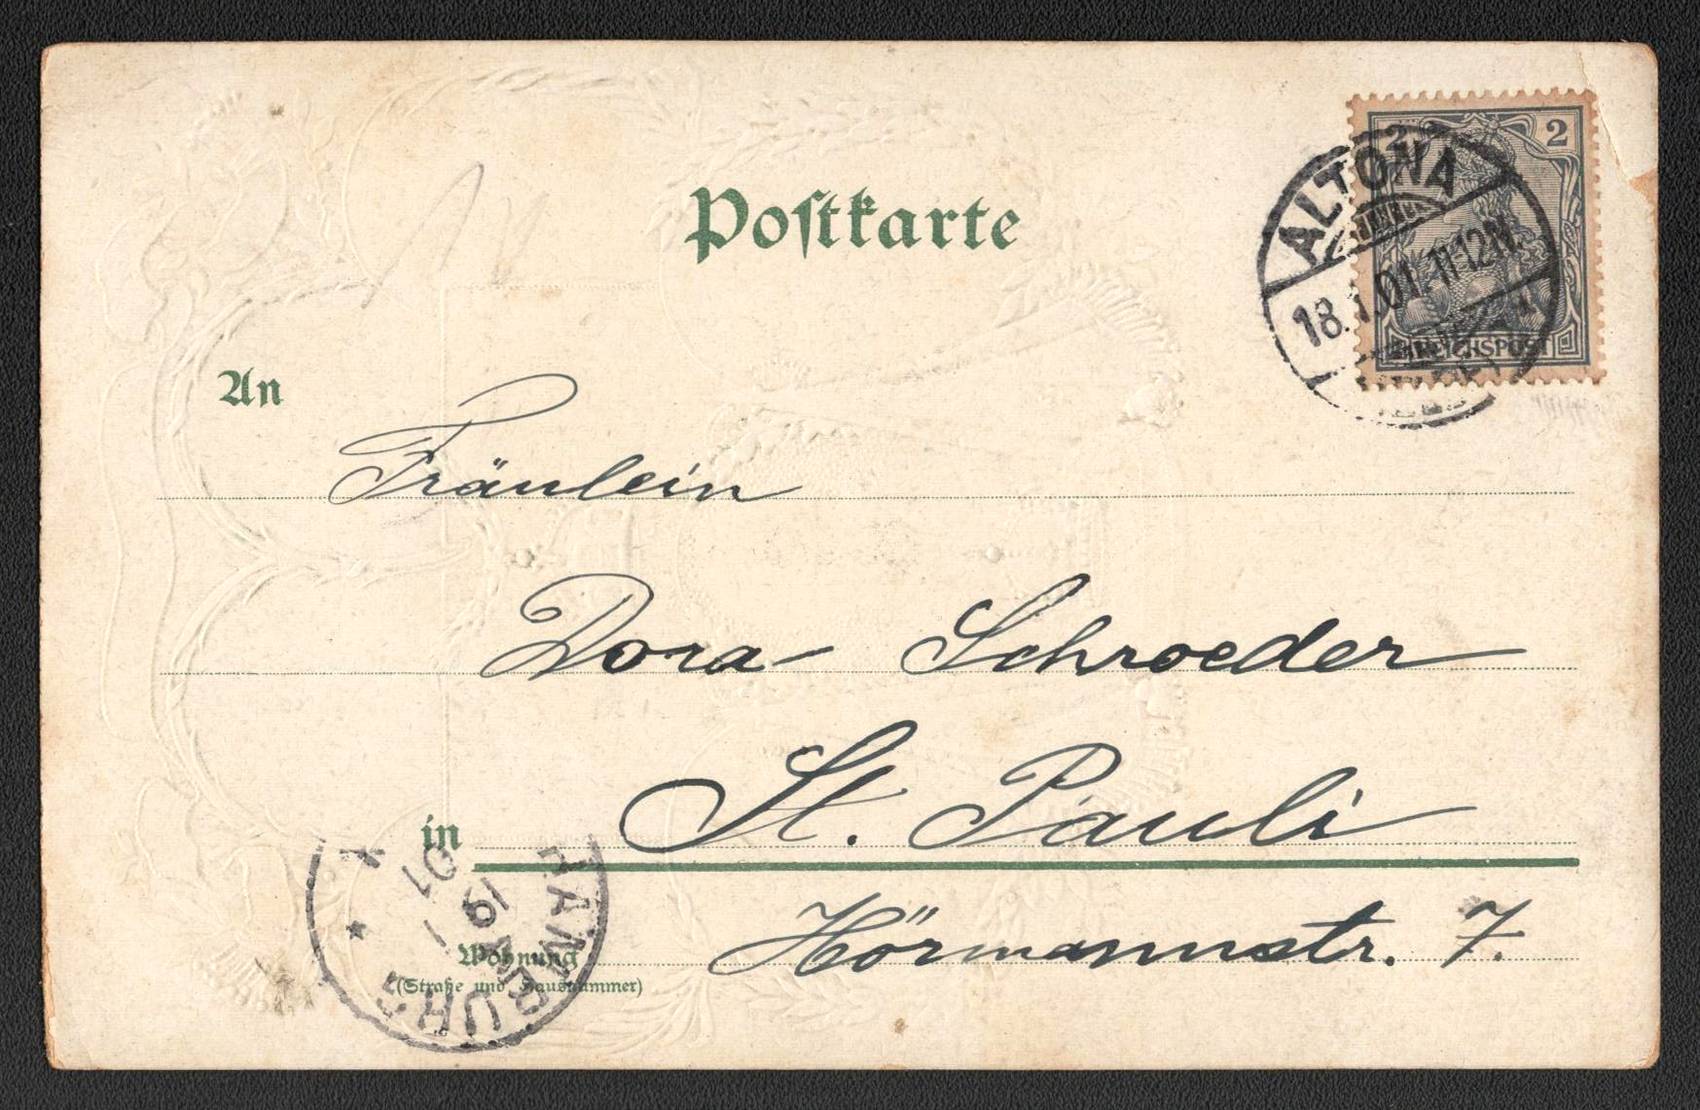 Postkarte
2 2
ALTONA
18.1.01.11-12N.
REICHSPOST
An
Fräulein
Dora Schroeder
in St. Pauli
Wohnung Hörmannstr. 7.
(Straße und Hausnummer)
HAMBURG
19 1
01